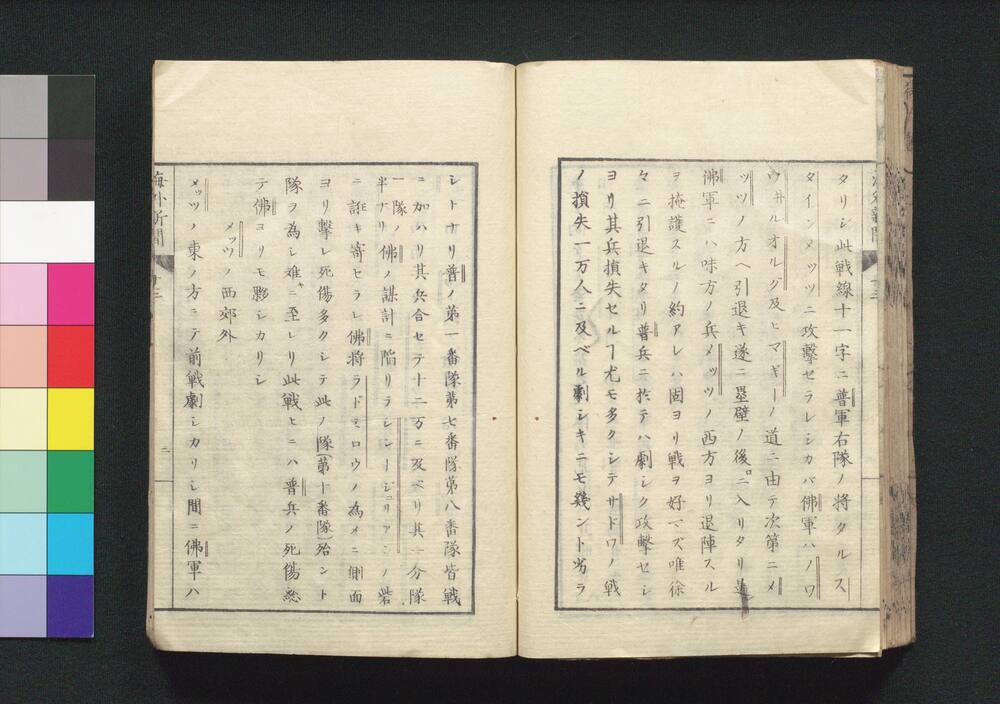 タリシ此戦線十一字ニ普軍右隊ノ将タルス
タインメッツニ攻撃セラレシカバ佛軍ハノワ
ウ井ルオルグ及ヒマギーノ道ニ由テ次第ニメ
ッツノ方ヘ引退キ遂ニ塁壁ノ後ロニ入リタリ
佛軍ニハ味方ノ兵メッツノ西方ヨリ退陣スル
ヲ掩護スルノ約アレハ固ヨリ戦ヲ好マズ唯徐
々ニ引退キタリ普兵ニ於テハ劇シク攻撃セシ
ヨリ其兵損失セルヿ尤モ多クシテサドワノ戦
ノ損失一万人ニ及ベル劇シキニモ幾ント劣ラ
シトナリ普ノ第一番隊第七番隊第八番隊皆戦
ニ加ハリ其兵合セテ十二万ニ及ベリ其一分隊
一隊ノ半ナリ佛ノ謀計ニ陥リラシンージュリアンノ砦
ニ誑キ寄セラレ佛将ラドミロウノ為メニ側面
ヨリ撃レ死傷多クシテ此ノ隊(第十番隊)殆ント
隊ヲ為シ难キニ至レリ此戦ヒニハ普兵ノ死傷総
テ佛ヨリモ夥シカリシ
メッツノ西郊外
メッツノ東ノ方ニテ前戦劇シカリシ間ニ佛軍ハ
海外新聞
十三
二